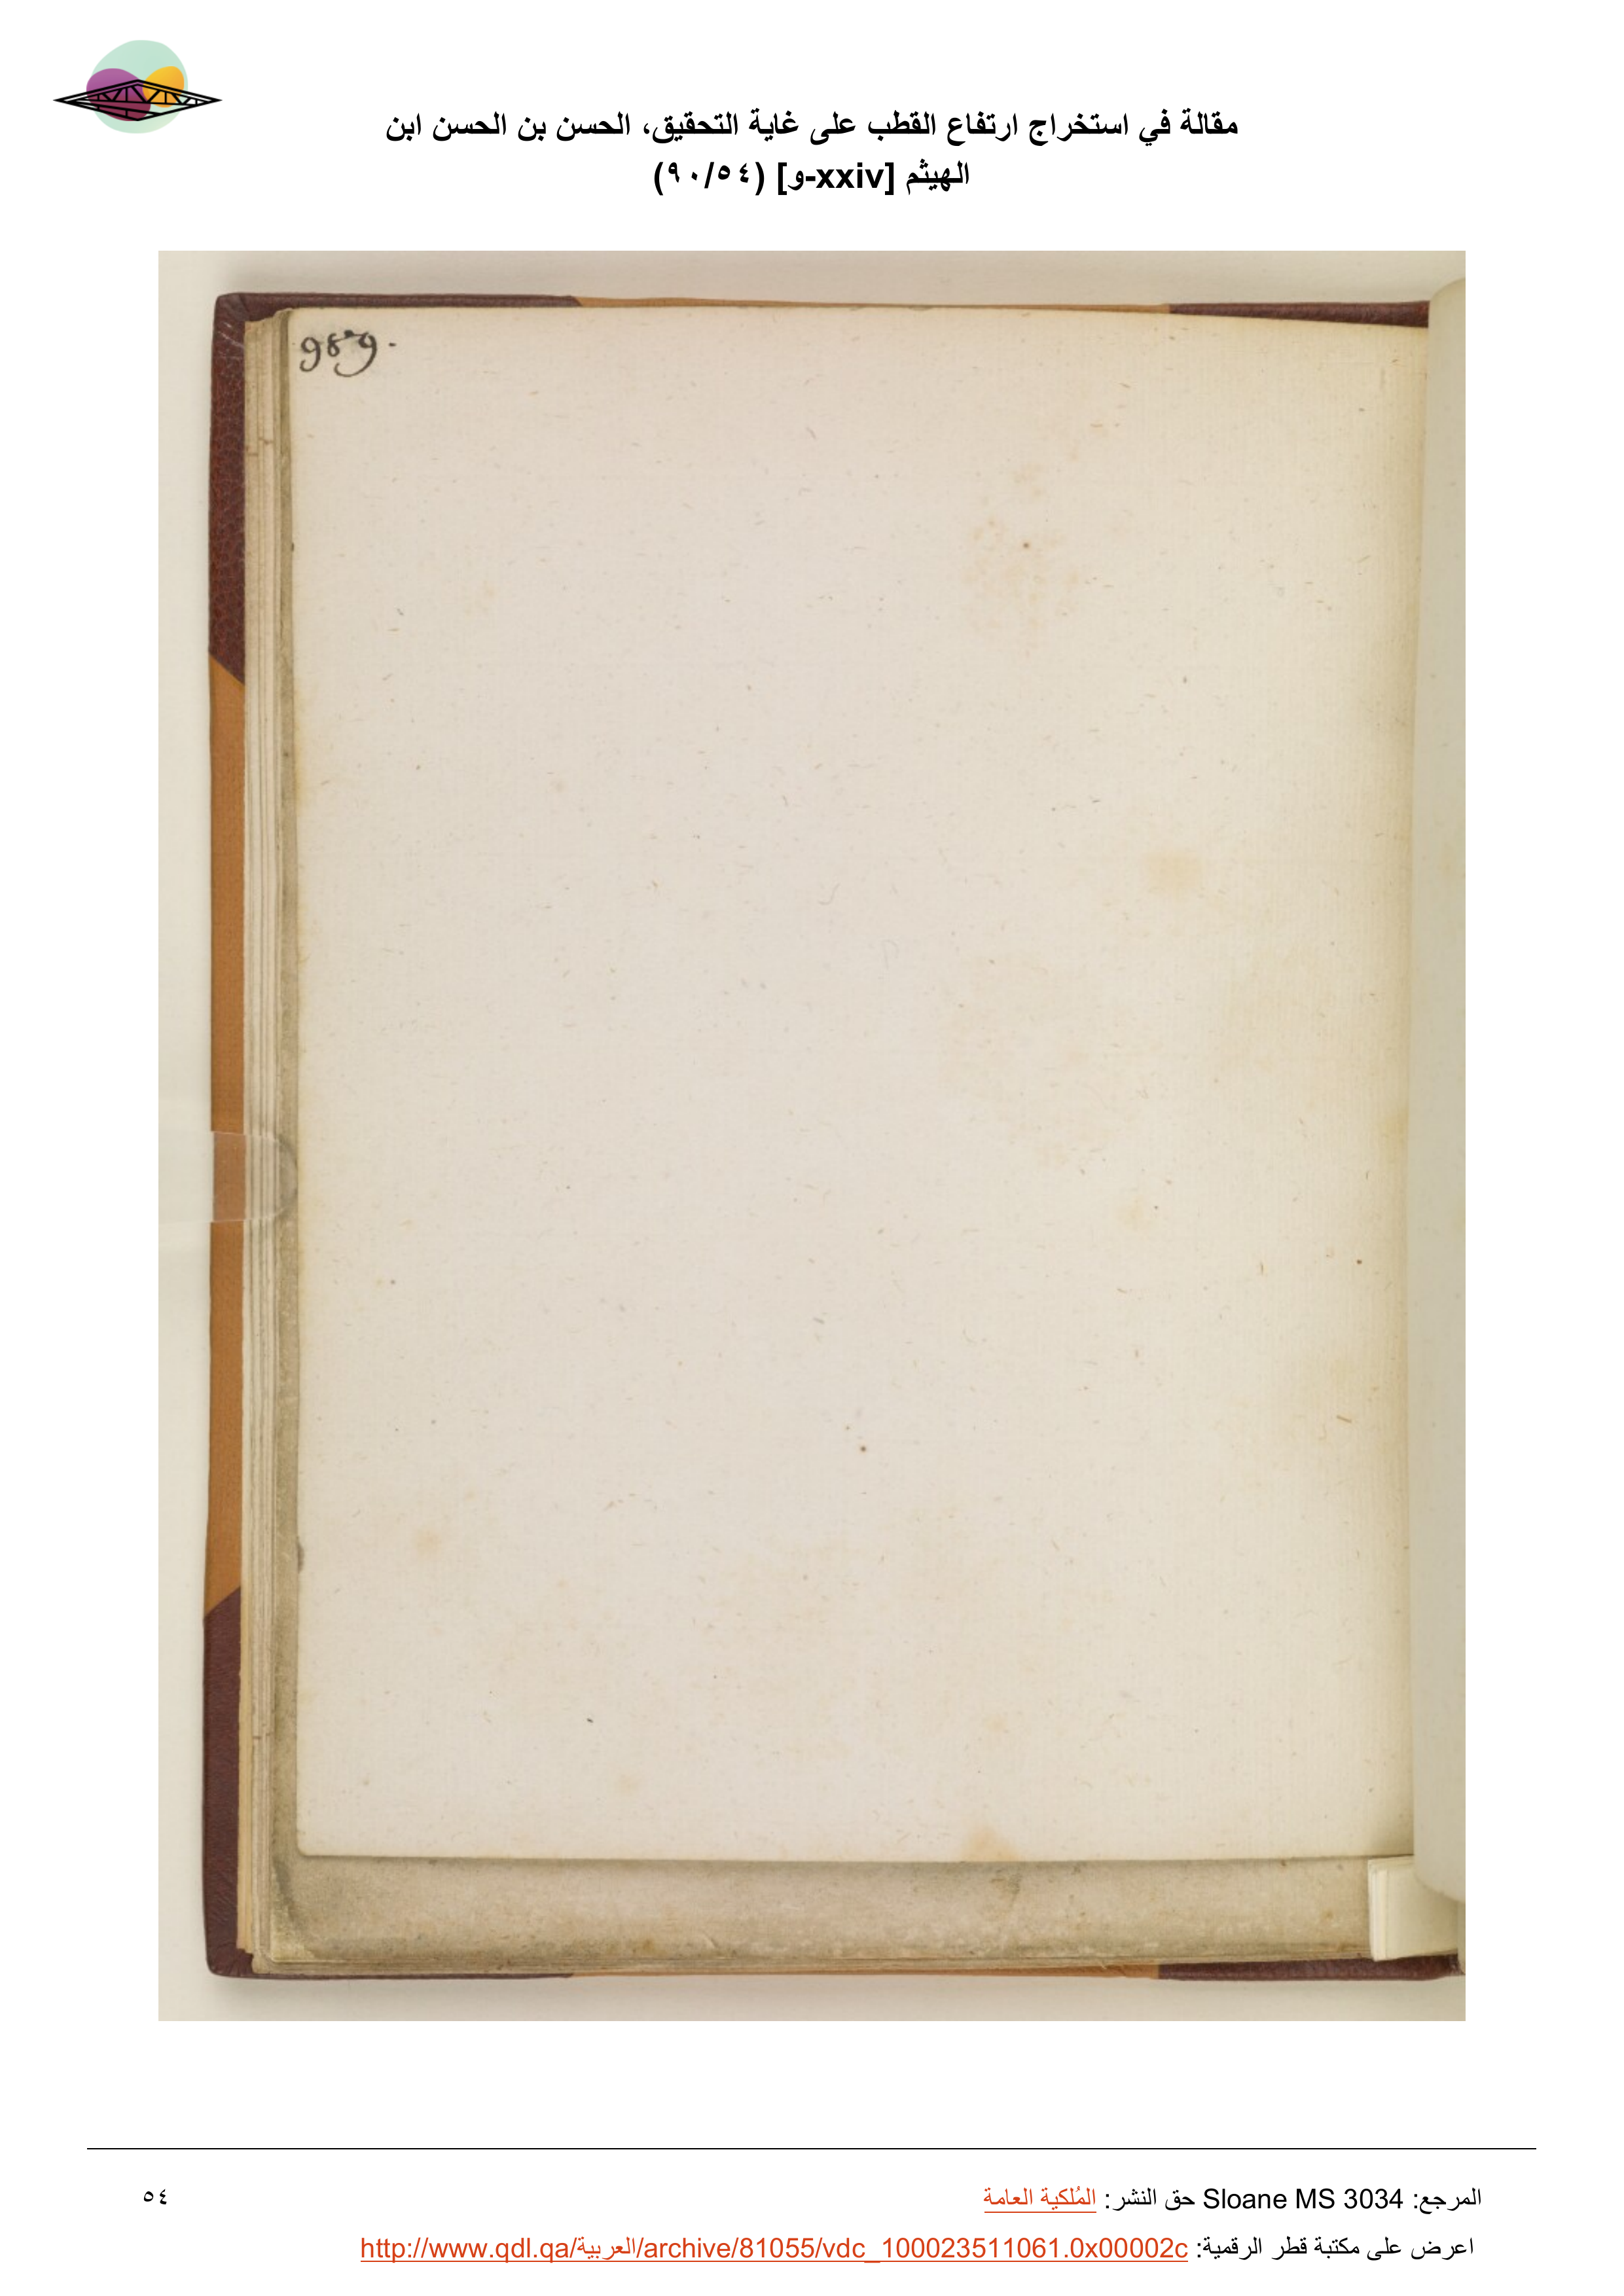 مقالة في استخراج ارتفاع القطب على غاية التحقيق، الحسن بن الحسن ابن
الهيثم [xxiv-و] (٩٠/٥٤)
989.
المرجع: Sloane MS 3034 حق النشر: المُلكية العامة
٥٤
اعرض على مكتبة قطر الرقمية: http://www.qdl.qa/العربية/archive/81055/vdc_100023511061.0x00002c